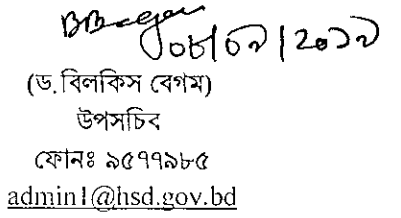 BBegum
০৮/০৯/২০১৯
(ড. বিলকিস বেগম)
উপসচিব
ফোনঃ ৯৫৭৭৯৮৫
admin1@hsd.gov.bd